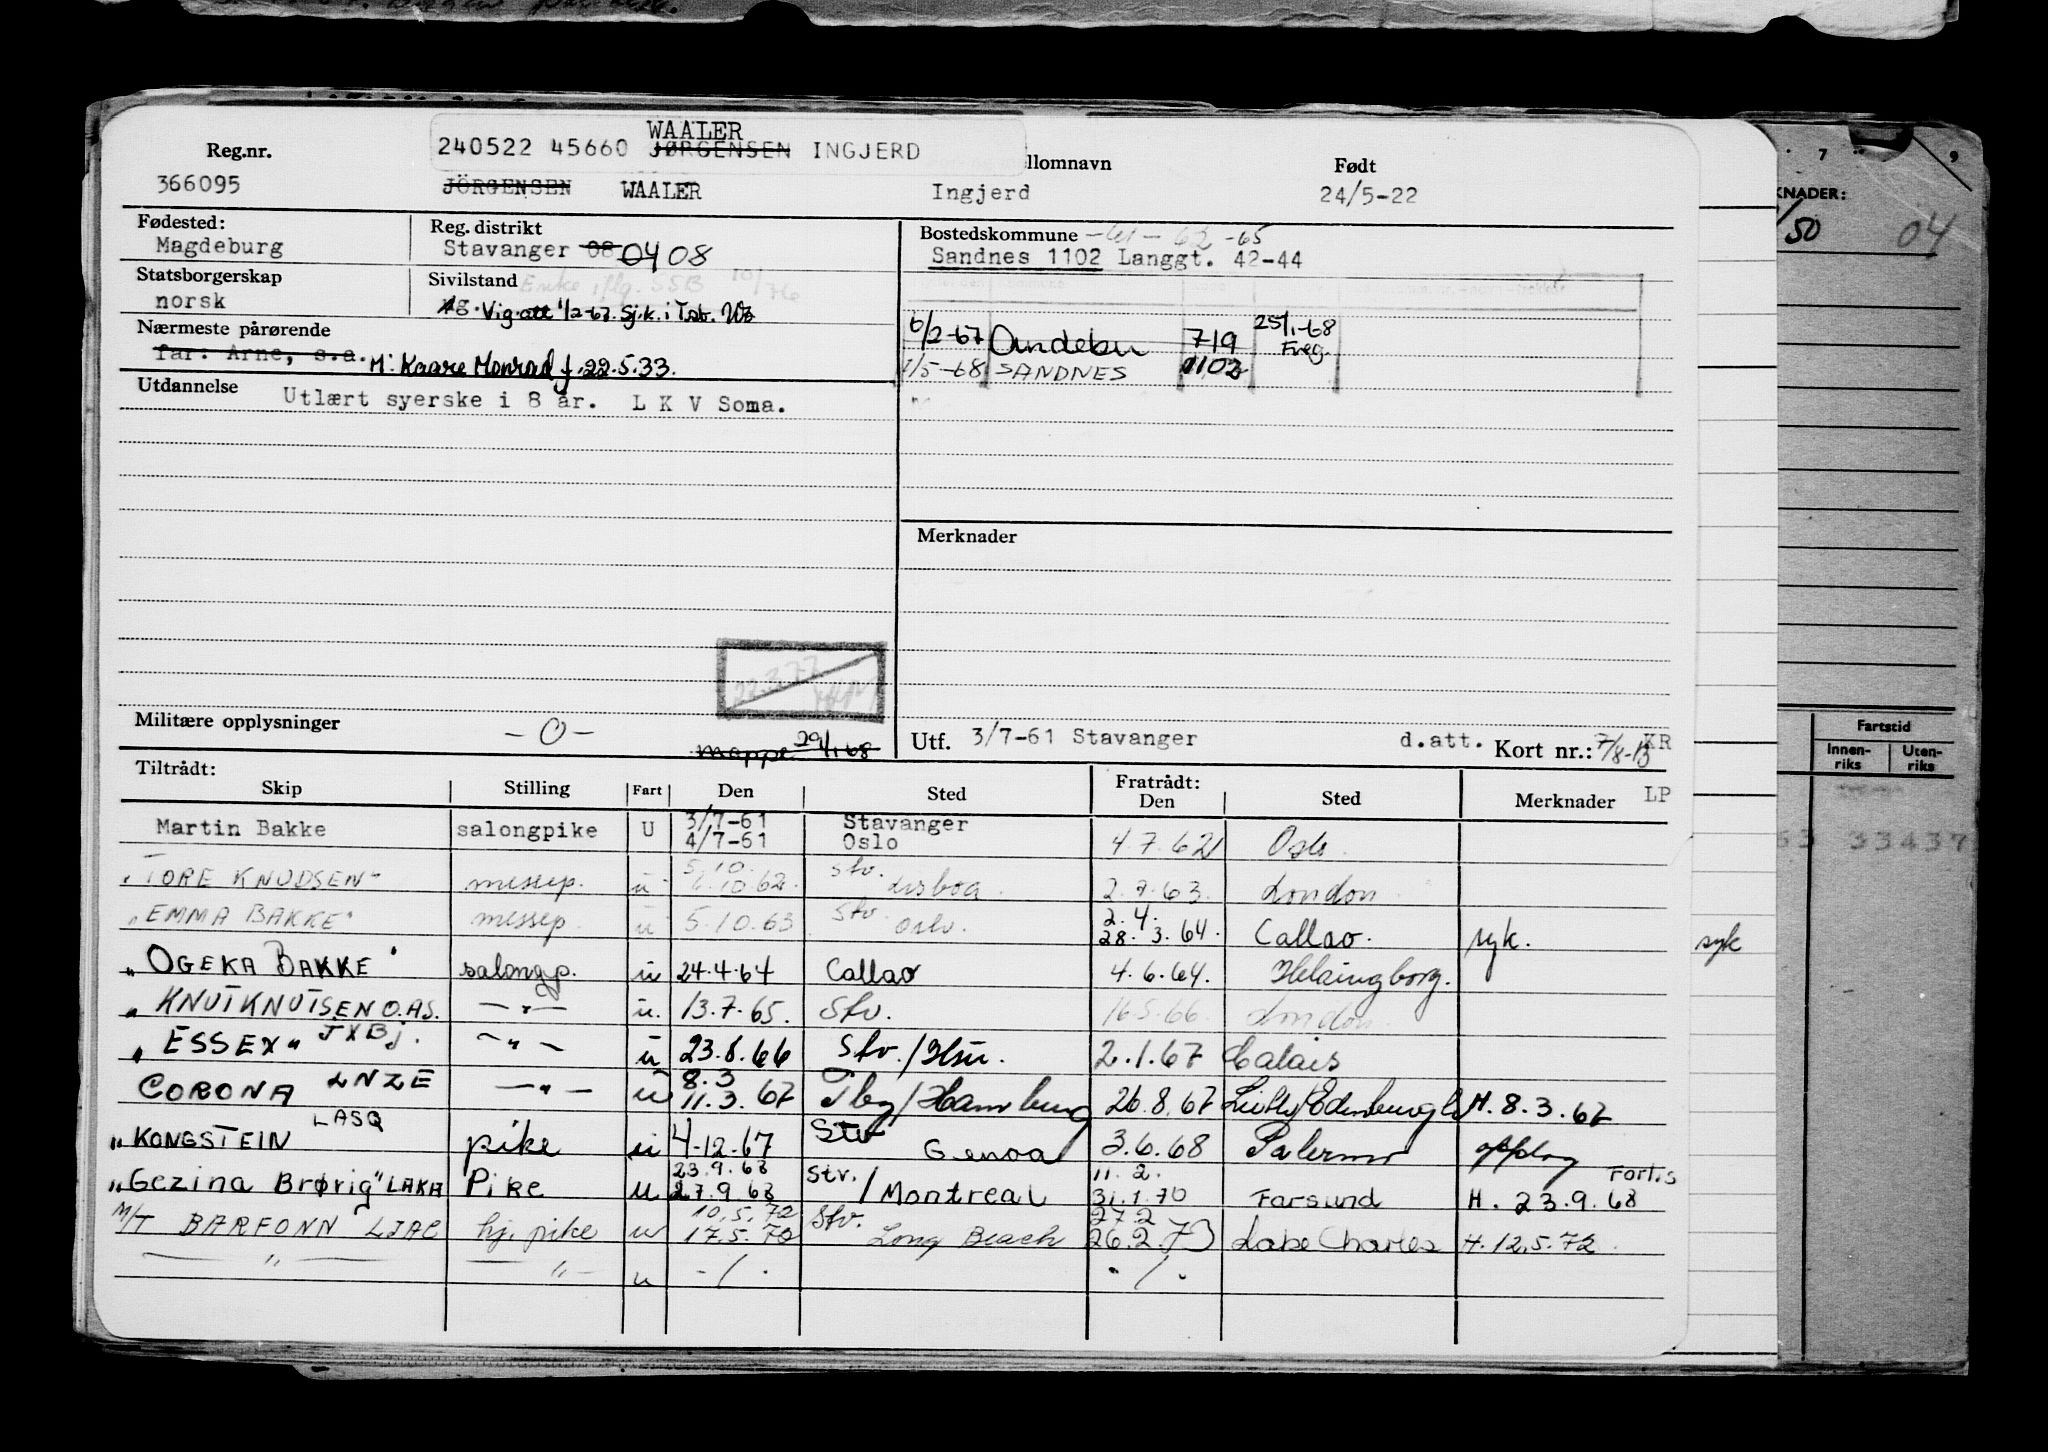 WAALER
240522 45660 JØRGENSEN INGJERD
Reg.nr. llomnavn Født
366095 JÖRGENSEN WAALER Ingjerd 24/5-22
Fødested: Reg. distrikt Bostedskommune -61-62-65
Magdeburg Stavanger 08 04 08 Sandnes 1102 Langgt. 42-44
Statsborgerskap Sivilstand Enke iflg. SSB 10/76
norsk ug. Vig. att 1/2-67. Sj.k. i Tsb.
Nærmeste pårørende
far: Arne, s.a. M: Kaare Monrad f. 22.5.33.
6/2-67 Andebu 719 25/1-68 Freg.
1/5-68 SANDNES 1102
Utdannelse Utlært syerske i 8 år. L K V Soma.
Merknader
22.3.77
Militære opplysninger -0-
mappe 29/1-68
Utf. 3/7-61 Stavanger d.att. Kort nr.: 7/8-13 KR
LP
Tiltrådt: Fratrådt:
Skip Stilling Fart Den Sted Den Sted Merknader
Martin Bakke salongpike U 3/7-61 4/7-61 Stavanger Oslo 4.7.62 Oslo
"TORE KNUDSEN" messep. u 5.10. 6.10.62. Stv. Lisboa. 2.7.63. London
"EMMA BAKKE" messep u 5.10.63 Stv. Oslo. 2.4. 28.3.64. Callao. syk.
"OGEKA BAKKE" salongp. u 24.4.64 Callao 4.6.64. Helsingborg.
"KNUT KNUTSEN O.AS. -"- u. 13.7.65. Stv. 16.5.66. London
"ESSEX" JXBJ. -"- u 23.8.66 Stv./Hsu. 2.1.67 Calais
CORONA LNZE -"- u 8.3 11.3.67 Tbg/Hamburg 26.8.67 Leith/Edinburgh H. 8.3.67
"KONGSTEIN LASQ pike u 4.12.67 Stv Genoa 3.6.68 Palermo opplag
"Gezina Brørig" LAKA Pike u 23.9.68 27.9.68 Stv. / Montreal 11.2. 31.1.70 Farsund H. 23.9.68 Forts
M/T BARFONN LJAC hj. pike u 10.5.72 17.5.72 Stv. Long Beach 27.2 26.2.73 Lake Charles H. 12.5.72.
-"- -"- u -/. ./.
7 9
KNADER:
/50 04
Fartstid
Innen-
riks
Uten-
riks
63 33437
syk